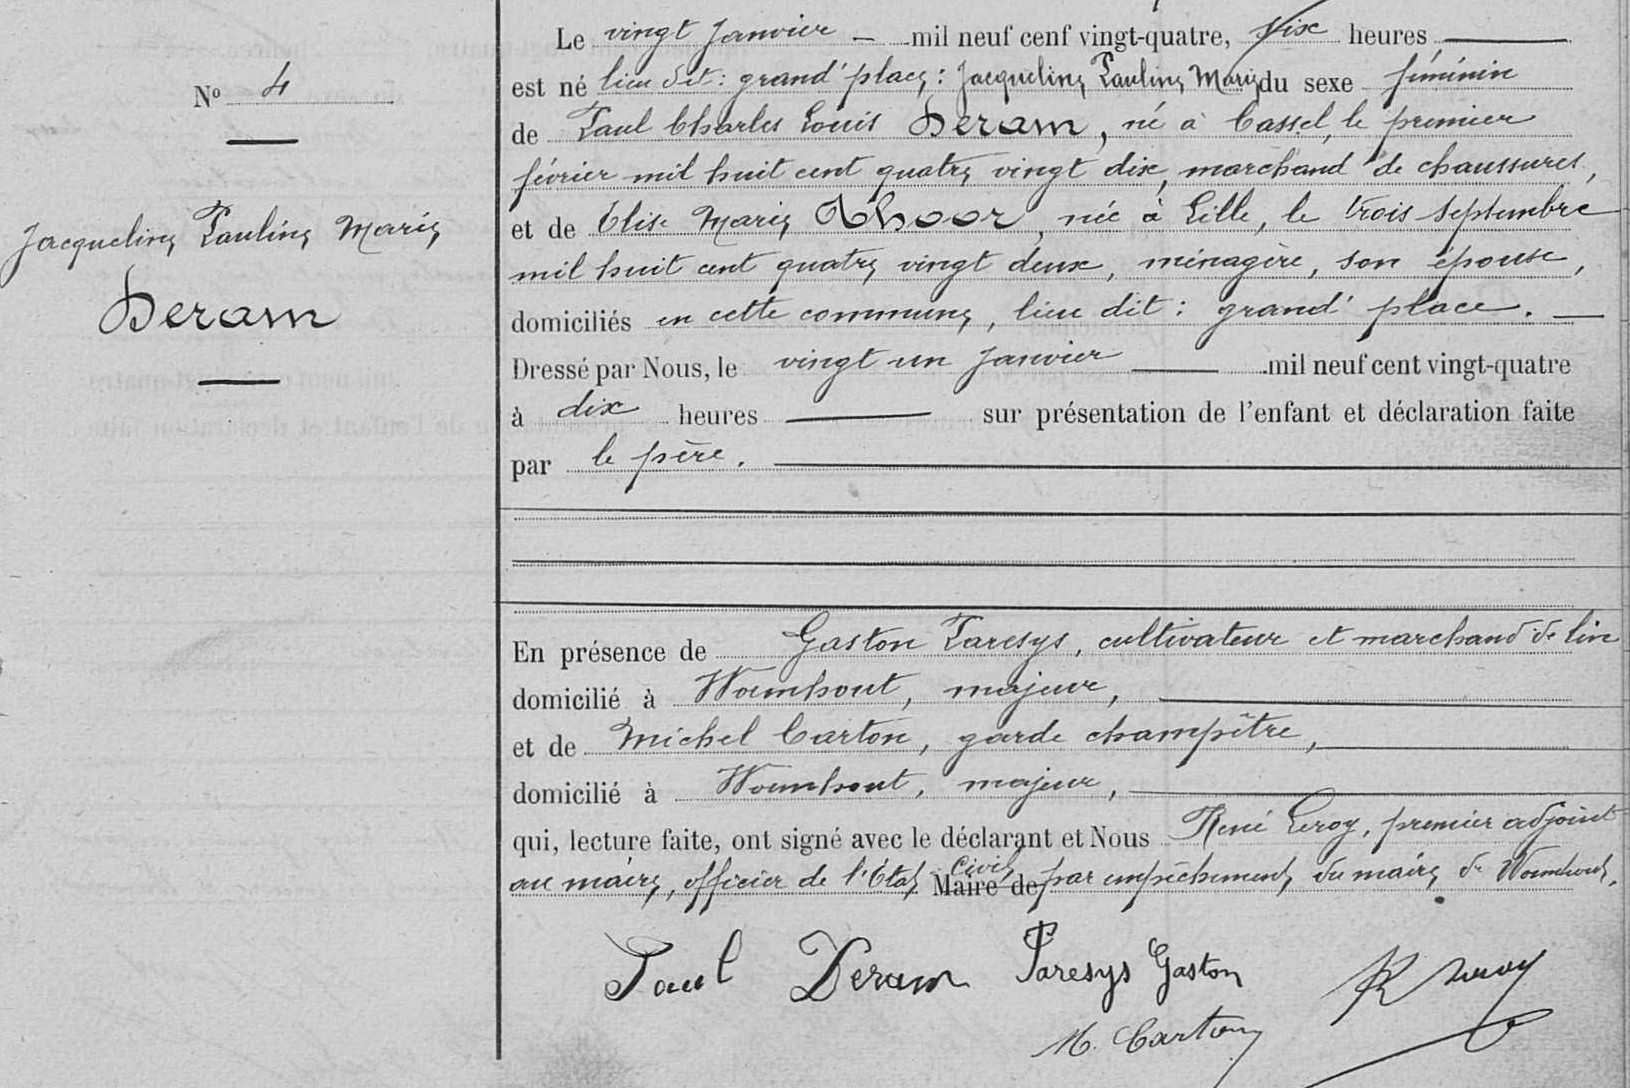 Le vingt janvier — mil neuf cent vingt-quatre, six heures
N° 4
est né lieu dit : grand' place : Jacqueline Pauline Marie du sexe féminin
de Paul Charles Louis Deram, né à Cassel, le premier
février mil huit cent quatre vingt dix, marchand de chaussures,
Jacqueline Pauline Marie
Deram
et de Elise Marie Dhoor, née à Lille, le trois septembre
mil huit cent quatre vingt deux, ménagère, son épouse,
domiciliés en cette commune, lieu dit : grand' place. —
Dressé par Nous, le vingt un janvier — mil neuf cent vingt-quatre
à dix heures — sur présentation de l'enfant et déclaration faite
par le père.
En présence de Gaston Paresys, cultivateur et marchand de lin
domicilié à Wormhout, majeur,
et de Michel Carton, garde champêtre,
domicilié à Wormhout, majeur,
qui, lecture faite, ont signé avec le déclarant et Nous René Leroy, premier adjoint
au maire, officier de l'Etat Civil Maire de par empêchement du maire de Wormhout.
Paul Deram Paresys Gaston R Leroy
M. Carton